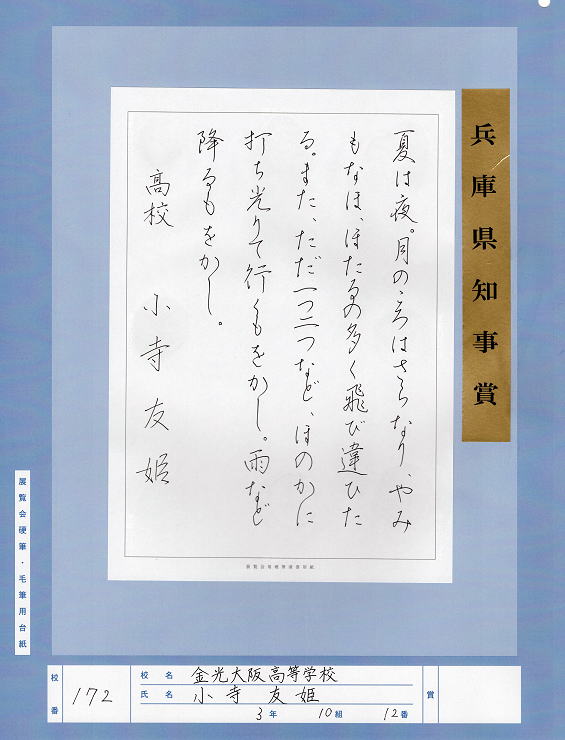 兵庫県知事賞
夏は夜。月のころはさらなり、やみ
もなほ、ほたるの多く飛び違ひた
る。また、ただ一つ二つなど、ほのかに
打ち光りて行くもをかし。雨など
降るもをかし。
高校 小寺友姫
展覧会硬筆・毛筆用台紙
校番 172
校名 金光大阪高等学校
氏名 小寺友姫
3年 10組 12番
賞